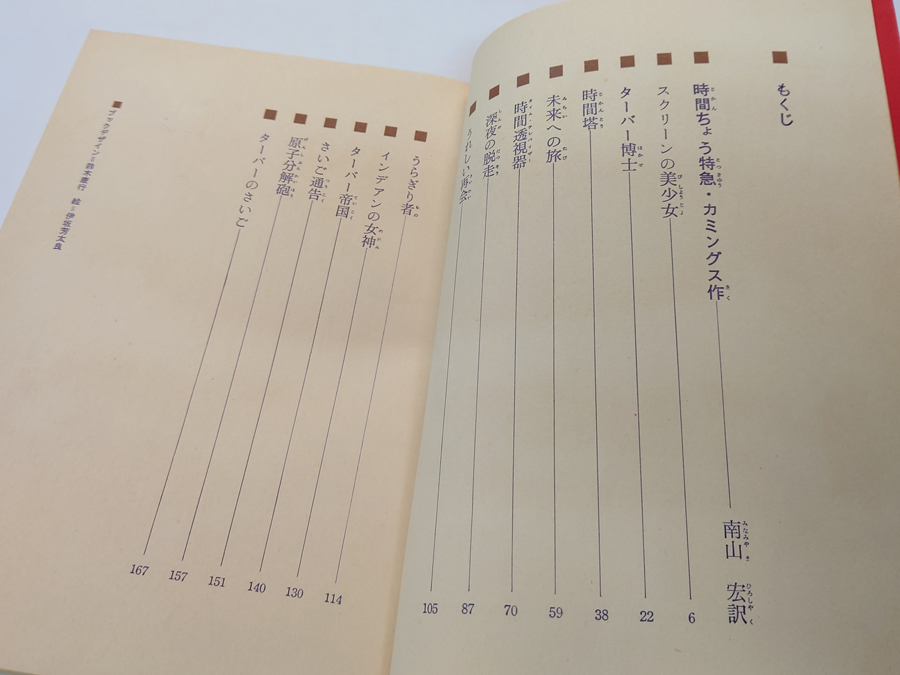 もくじ
時間ちょう特急・カミングス作 南山 宏訳
スクリーンの美少女 6
ターバー博士 22
時間塔 38
未来への旅 59
時間透視器 70
深夜の脱走 87
うれしい再会 105
うらぎり者 114
インデアンの女神 130
ターバー帝国 140
さいご通告 151
原子分解砲 157
ターバーのさいご 167
ブックデザイン=鈴木康行 絵=伊坂芳太良